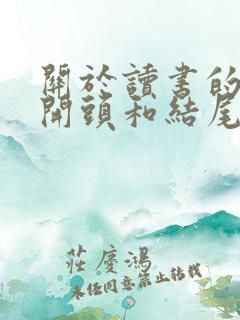 關於讀書的
開頭和結尾
莊慶鴻
未經同意禁止轉載